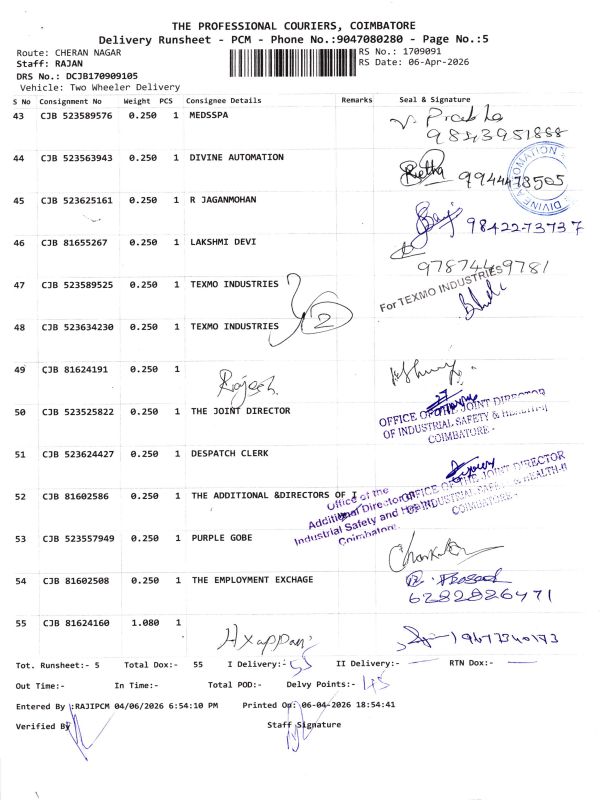 THE PROFESSIONAL COURIERS, COIMBATORE
Delivery Runsheet - PCM - Phone No.:9047080280 - Page No.:5
Route: CHERAN NAGAR RS No.: 1709091
Staff: RAJAN RS Date: 06-Apr-2026
DRS No.: DCJB170909105
Vehicle: Two Wheeler Delivery
S No Consignment No Weight PCS Consignee Details Remarks Seal & Signature
43 CJB 523589576 0.250 1 MEDSSPA Prabha
9843951888
44 CJB 523563943 0.250 1 DIVINE AUTOMATION Retha 9944478505
DIVINE AUTOMATION
45 CJB 523625161 0.250 1 R JAGANMOHAN
9842273737
46 CJB 81655267 0.250 1 LAKSHMI DEVI
9787449781
47 CJB 523589525 0.250 1 TEXMO INDUSTRIES For TEXMO INDUSTRIES
48 CJB 523634230 0.250 1 TEXMO INDUSTRIES 2
49 CJB 81624191 0.250 1 Rajesh
50 CJB 523525822 0.250 1 THE JOINT DIRECTOR
OFFICE OF THE JOINT DIRECTOR
OF INDUSTRIAL SAFETY & HEALTH-II
COIMBATORE -
51 CJB 523624427 0.250 1 DESPATCH CLERK
OFFICE OF THE JOINT DIRECTOR
OF INDUSTRIAL SAFETY & HEALTH-II
COIMBATORE -
52 CJB 81602586 0.250 1 THE ADDITIONAL &DIRECTORS OF I
Office of the
Additional Director of
Industrial Safety and Health
Coimbatore.
53 CJB 523557949 0.250 1 PURPLE GOBE
54 CJB 81602508 0.250 1 THE EMPLOYMENT EXCHAGE Prasad
6282826471
55 CJB 81624160 1.080 1 Ayappan 9677340173
Tot. Runsheet:- 5 Total Dox:- 55 I Delivery:- 55 II Delivery:- RTN Dox:-
Out Time:- In Time:- Total POD:- Delvy Points:- 45
Entered By :RAJIPCM 04/06/2026 6:54:10 PM Printed On: 06-04-2026 18:54:41
Verified By Staff Signature